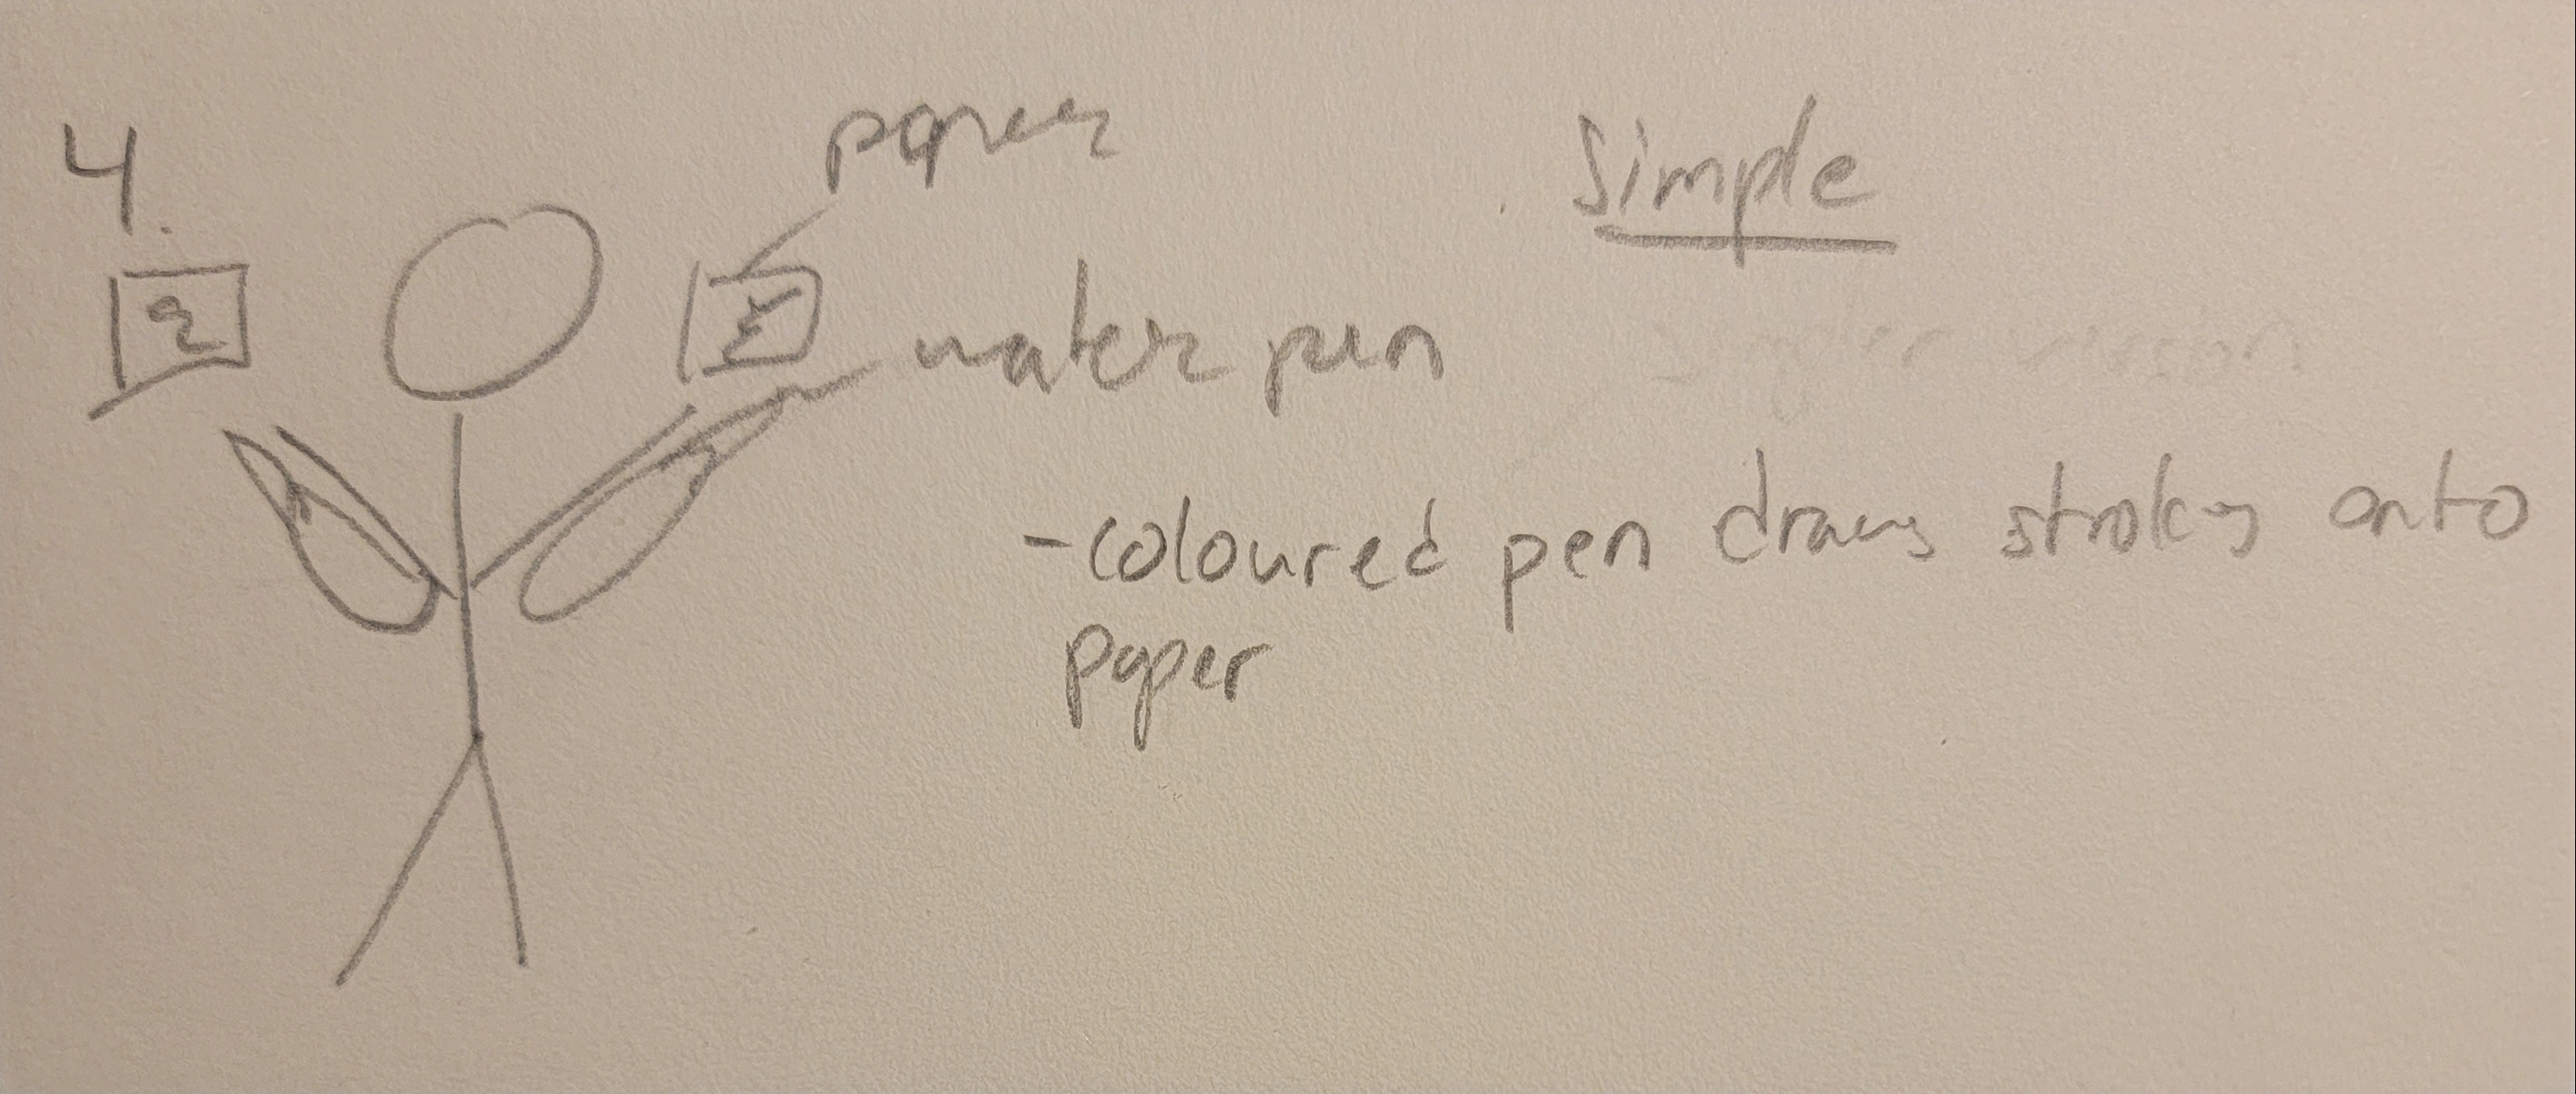 4.
paper
Simple
water pen
-coloured pen draws strokes onto
paper